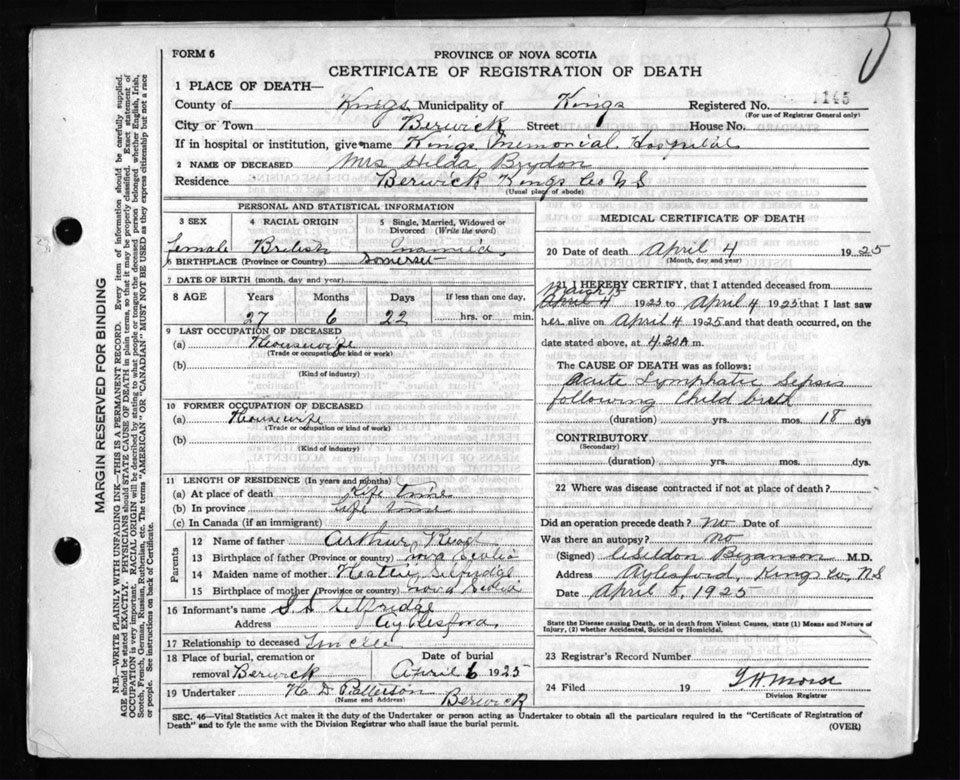 FORM 6
PROVINCE OF NOVA SCOTIA
CERTIFICATE OF REGISTRATION OF DEATH
1 PLACE OF DEATH—
County of Kings Municipality of Kings Registered No. 1145
(For use of Registrar General only)
City or Town Berwick Street House No.
If in hospital or institution, give name Kings Memorial Hospital
2 NAME OF DECEASED Mrs Hilda Brydon
Residence Berwick Kings Co NS
(Usual place of abode)
PERSONAL AND STATISTICAL INFORMATION
3 SEX 4 RACIAL ORIGIN 5 Single, Married, Widowed or Divorced (Write the word)
Female British
6 BIRTHPLACE (Province or Country) Somerset
7 DATE OF BIRTH (month, day and year)
8 AGE Years Months Days If less than one day,
27 6 22 hrs. or min.
9 LAST OCCUPATION OF DECEASED
(a) Housewife
(Trade or occupation or kind or work)
(b)
(Kind of industry)
10 FORMER OCCUPATION OF DECEASED
(a) Housewife
(Trade or occupation or kind of work)
(b)
(Kind of industry)
11 LENGTH OF RESIDENCE (In years and months)
(a) At place of death Life Time
(b) In province Life Time
(c) In Canada (if an immigrant)
Parents
12 Name of father Arthur
13 Birthplace of father (Province or country) Nova Scotia
14 Maiden name of mother Selfridge
15 Birthplace of mother (Province or country) Nova Scotia
16 Informant's name S. S. Selfridge
Address Aylesford
17 Relationship to deceased Uncle
18 Place of burial, cremation or removal Berwick
Date of burial April 6 1925
19 Undertaker H. D. Patterson Berwick
(Name and Address)
MEDICAL CERTIFICATE OF DEATH
20 Date of death April 4 1925
(Month, day and year)
21 I HEREBY CERTIFY, that I attended deceased from
April 4 1925 to April 4 1925 that I last saw
her alive on April 4 1925 and that death occurred, on the
date stated above, at 4.30 A m.
The CAUSE OF DEATH was as follows:
Acute Lymphatic Sepsis
following Child birth
(duration) yrs. mos. 18 dys
CONTRIBUTORY
(Secondary)
(duration) yrs. mos. dys.
22 Where was disease contracted if not at place of death?
Did an operation precede death? No Date of
Was there an autopsy? No
(Signed) Weldon Bezanson M.D.
Address Aylesford, Kings Co, N.S
Date April 5, 1925
State the Disease causing Death, or in death from Violent Causes, state (1) Means and Nature of Injury, (2) whether Accidental, Suicidal or Homicidal.
23 Registrar's Record Number
24 Filed 19 Morse
Division Registrar
SEC. 46—Vital Statistics Act makes it the duty of the Undertaker or person acting as Undertaker to obtain all the particulars required in the "Certificate of Registration of
Death" and to fyle the same with the Division Registrar who shall issue the burial permit. (OVER)
MARGIN RESERVED FOR BINDING
N.B.—WRITE PLAINLY WITH UNFADING INK—THIS IS A PERMANENT RECORD. Every item of information should be carefully supplied.
AGE should be stated EXACTLY. PHYSICIANS should STATE CAUSE OF DEATH in plain terms, so that it may be properly classified. Exact statement of
OCCUPATION is very important. RACIAL ORIGIN will be described by stating to what people or tongue the deceased person belonged whether English, Irish,
Scotch, French, German, Russian, Ruthenian, etc. The terms "AMERICAN" OR "CANADIAN" MUST NOT BE USED as they express citizenship but not a race
or people. See instructions on back of Certificate.